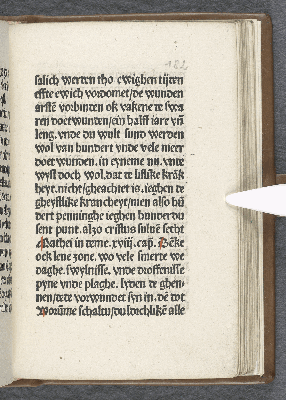 182
salich werten tho ewighen tijten
effte ewich vordomet/de wunden
arste vorbinten ok vakene te swa
ren doetwunden/ein halff iare vñ
leng. vnde du wult sund werden
wol van hundert vnde vele meer
doet wunden. in eyneme nu. vnte
wyst doch wol. dat te lifflike krāk
heyt. nicht/gheachtet is. ieghen te
gheystlike kranckheyt/men also hū
dert penninghe ieghen hundertdu
sent punt. alzo cristus suluē secht
Mathei in teme. xviij. cap̄. Dēke
ock leue zone. wo vele smerte we
daghe. swylnisse. vnde droffenisse
pyne vnde plaghe. lyden te ghen
nen/dete vorwundet syn in. dē tot
Worūme schaltu/du lochlikē alle